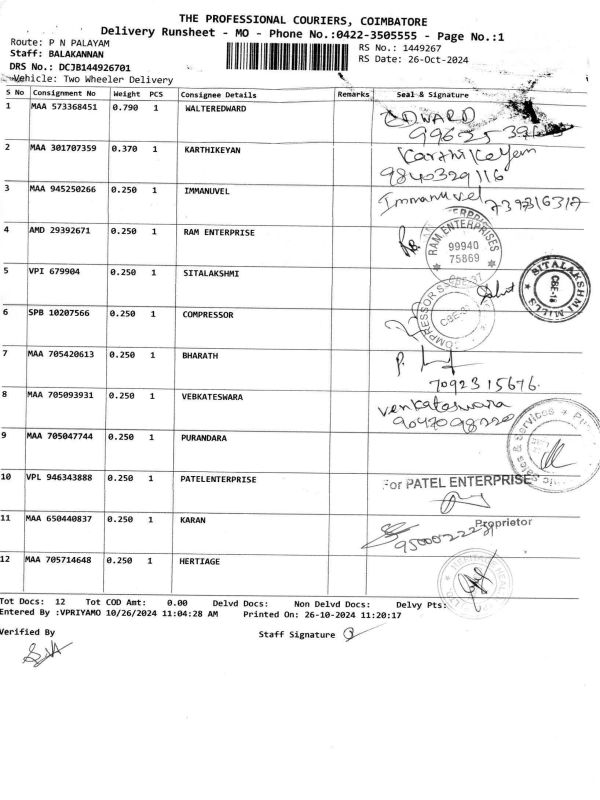 THE PROFESSIONAL COURIERS, COIMBATORE
Delivery Runsheet - MO - Phone No.:0422-3505555 - Page No.:1
Route: P N PALAYAM
RS No.: 1449267
Staff: BALAKANNAN
RS Date: 26-Oct-2024
DRS No.: DCJB144926701
Vehicle: Two Wheeler Delivery
S No Consignment No Weight PCS Consignee Details Remarks Seal & Signature
1 MAA 573368451 0.790 1 WALTEREDWARD
EDWARD
2 MAA 301707359 0.370 1 KARTHIKEYAN Karthikeyan
9840329116
3 MAA 945250266 0.250 1 IMMANUVEL Immanuvel
4 AMD 29392671 0.250 1 RAM ENTERPRISE RAM ENTERPRISES
99940
75869
5 VPI 679904 0.250 1 SITALAKSHMI SITALAKSHMI MILLS
CBE-18
6 SPB 10207566 0.250 1 COMPRESSOR COMPRESSOR
CBE-37
7 MAA 705420613 0.250 1 BHARATH P.
7092315676.
8 MAA 705093931 0.250 1 VEBKATESWARA venkateswara
9047098220
9 MAA 705047744 0.250 1 PURANDARA Sales & Services
10 VPL 946343888 0.250 1 PATELENTERPRISE For PATEL ENTERPRISE
Proprietor
11 MAA 650440837 0.250 1 KARAN
12 MAA 705714648 0.250 1 HERTIAGE
Tot Docs: 12 Tot COD Amt: 0.00 Delvd Docs: Non Delvd Docs: Delvy Pts:
Entered By :VPRIYAMO 10/26/2024 11:04:28 AM Printed On: 26-10-2024 11:20:17
Verified By
Staff Signature